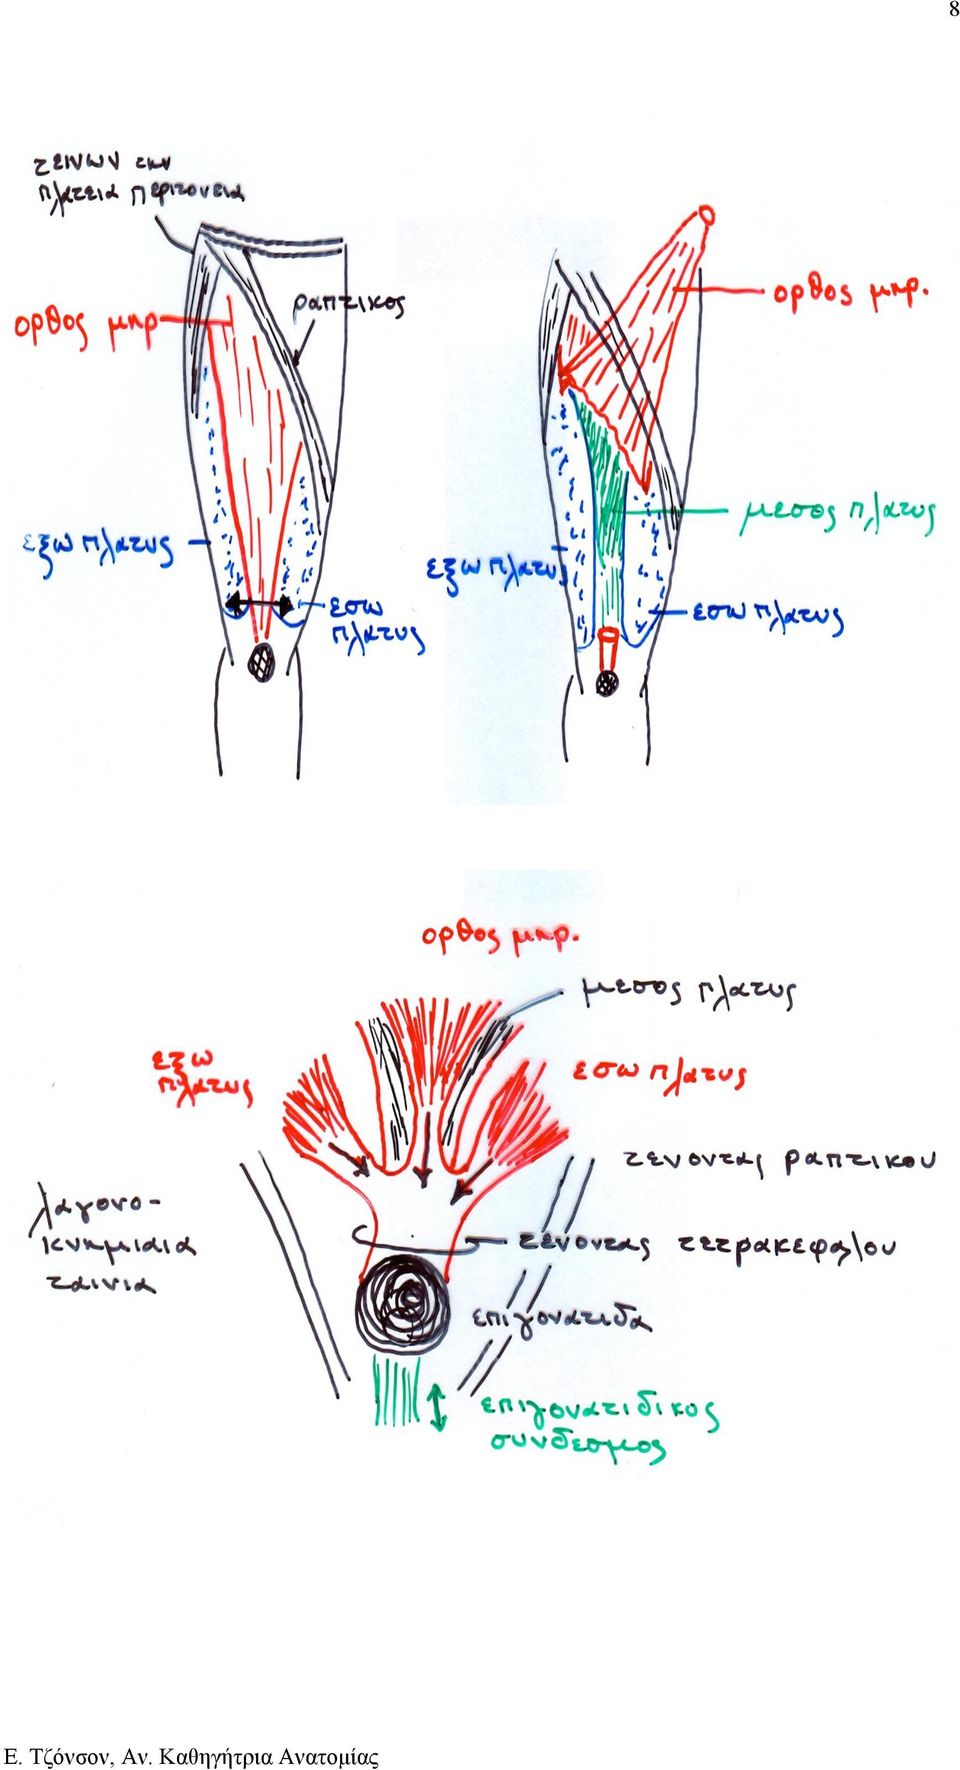 8
τεινων την
πλατεια περιτονεια
ορθος μηρ
ραπτικος
ορθος μηρ.
εξω πλατυς
εσω
πλατυς
εξω πλατυς
μεσος πλατυς
εσω πλατυς
ορθος μηρ.
μεσος πλατυς
εξω
πλατυς
εσω πλατυς
τενοντας ραπτικου
λαγονο-
κνημιαια
ταινια
τενοντας τετρακεφαλου
επιγονατιδα
επιγονατιδικος
συνδεσμος
Ε. Τζόνσον, Αν. Καθηγήτρια Ανατομίας